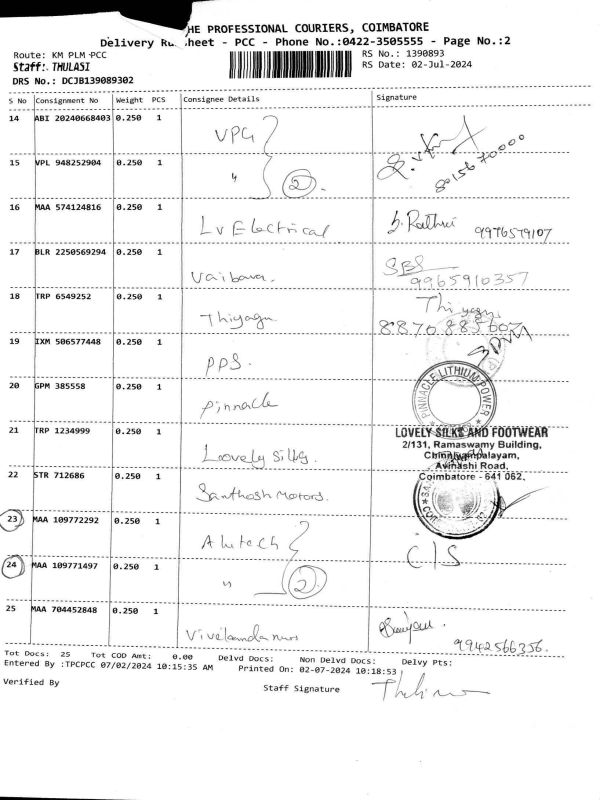 HE PROFESSIONAL COURIERS, COIMBATORE
Delivery Ru sheet - PCC - Phone No.:0422-3505555 - Page No.:2
Route: KM PLM -PCC
RS No.: 1390893
Staff: THULASI
RS Date: 02-Jul-2024
DRS No.: DCJB139089302
S No Consignment No Weight PCS Consignee Details Signature
14 ABI 20240668403 0.250 1 VPG
15 VPL 948252904 0.250 1 " 2
16 MAA 574124816 0.250 1 Lv Electrical 9976579107
17 BLR 2250569294 0.250 1 Vaibava. SBS
9965910357
18 TRP 6549252 0.250 1 Thiyagu Thiyagu
19 IXM 506577448 0.250 1 PPS.
20 GPM 385558 0.250 1 pinnacle PINNACLE LITHIUM POWER
21 TRP 1234999 0.250 1 Loovely Silks. LOVELY SILKS AND FOOTWEAR
2/131, Ramaswamy Building,
Chinniyampalayam,
Avinashi Road,
Coimbatore - 641 062.
22 STR 712686 0.250 1 Santhosh Motors.
23 MAA 109772292 0.250 1 C/S
24 MAA 109771497 0.250 1 " 2
25 MAA 704452848 0.250 1
9942566356.
Tot Docs: 25 Tot COD Amt: 0.00 Delvd Docs: Non Delvd Docs: Delvy Pts:
Entered By :TPCPCC 07/02/2024 10:15:35 AM Printed On: 02-07-2024 10:18:53
Verified By Staff Signature